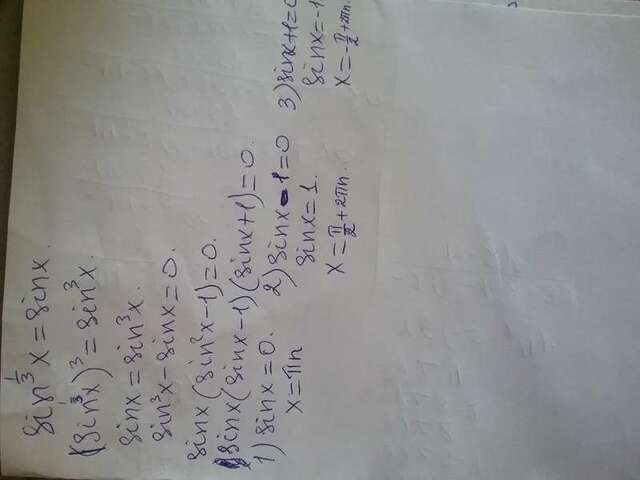 sin^(1/3) x = sinx.
(sin^(1/3) x)^3 = sin^3 x.
sinx = sin^3 x.
sin^3 x - sinx = 0.
sinx (sin^2 x - 1) = 0.
sinx (sinx - 1) (sinx + 1) = 0.
1) sinx = 0. 2) sinx - 1 = 0 3) sinx + 1 = 0
x = πn sinx = 1. sinx = -1
x = π/2 + 2πn. x = -π/2 + 2πn.